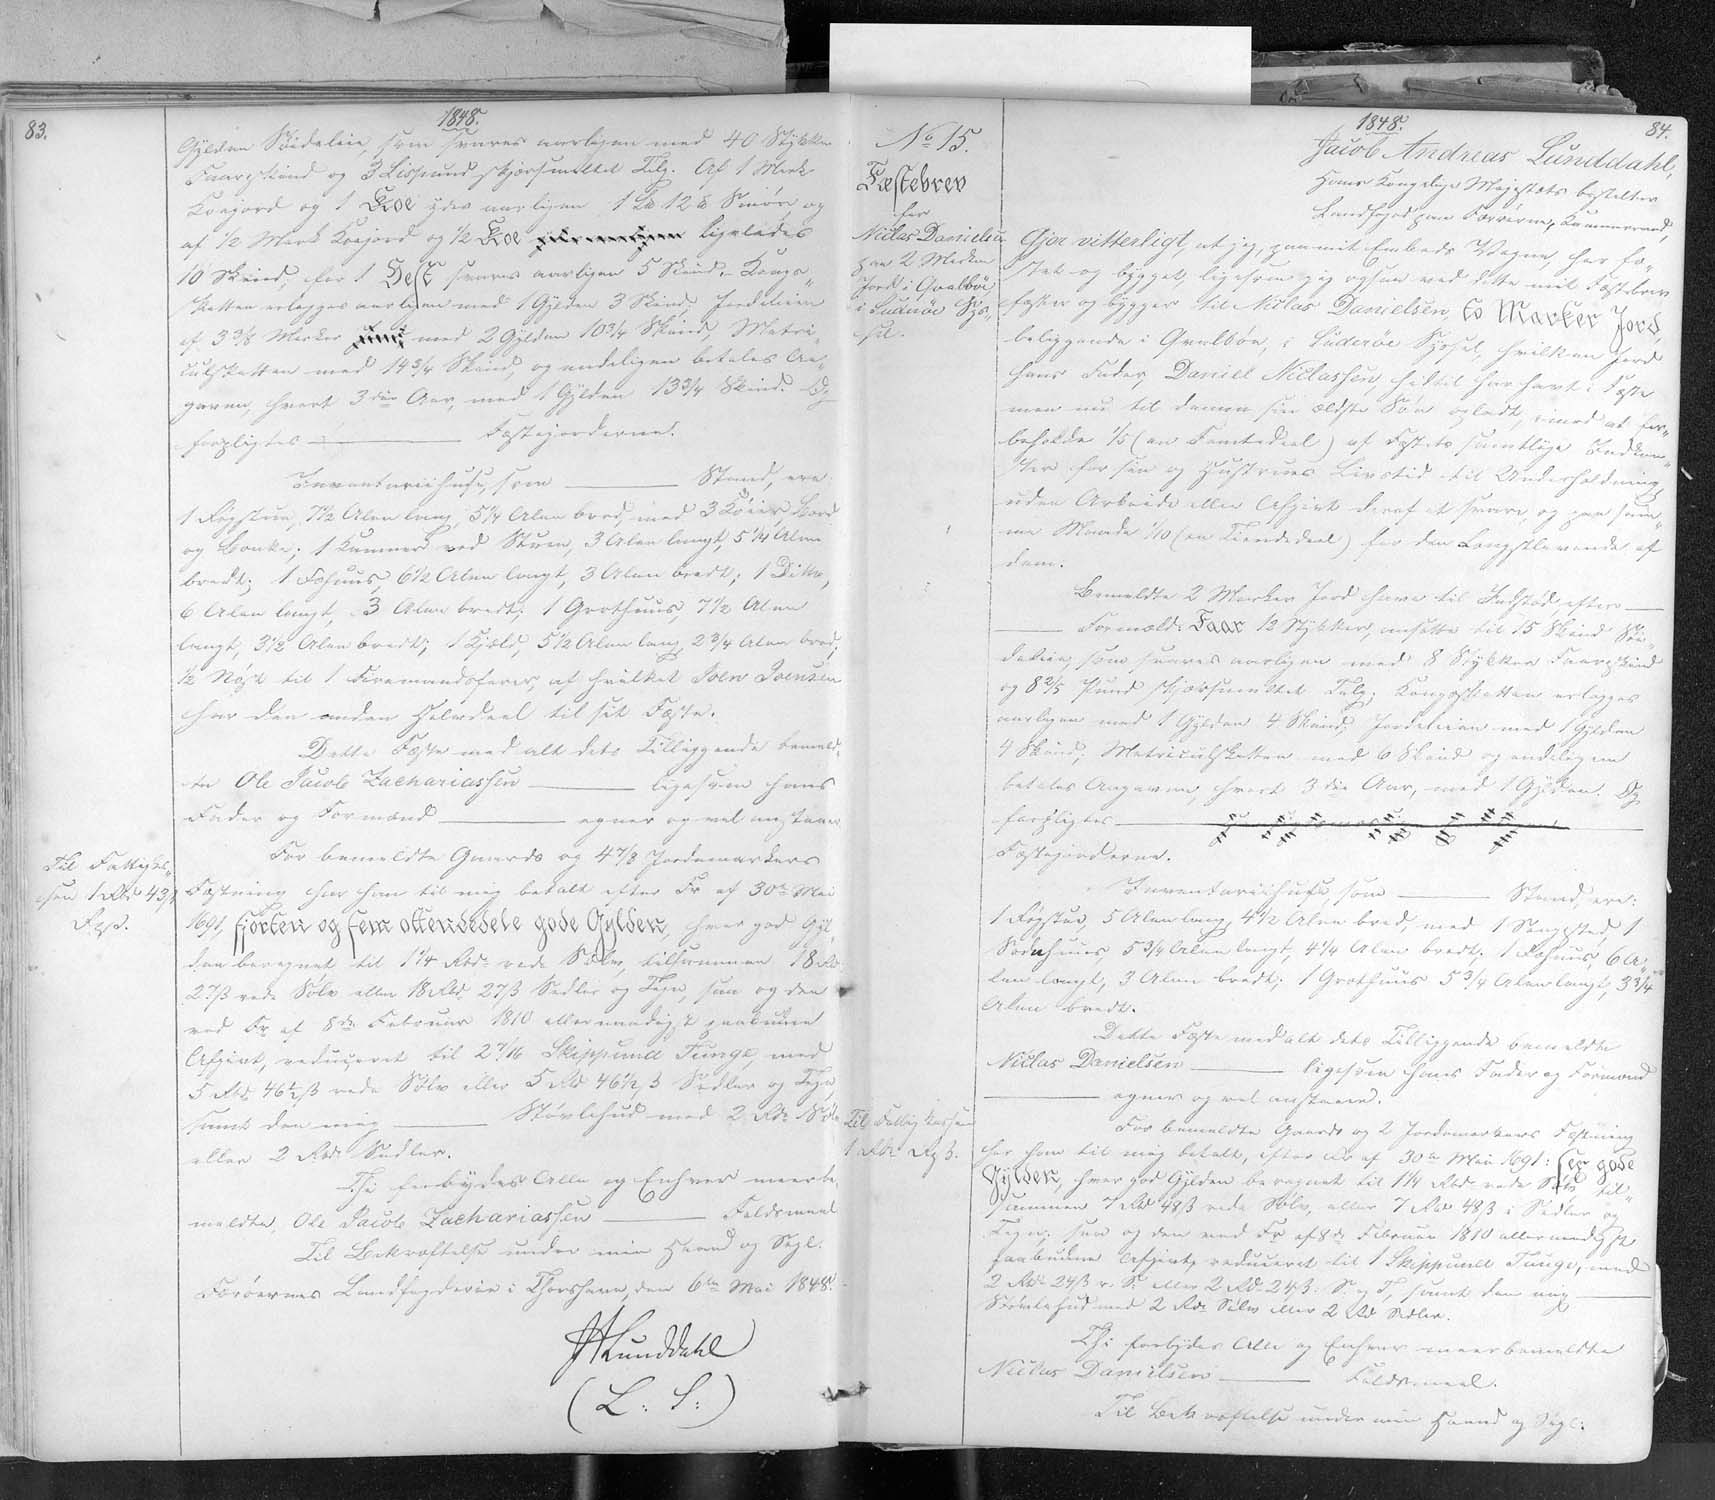 83.
1848.
Gylden Södeleie, som svares aarligen med 40 Stykker
Faareskind og 3 Lispund skjærsmeltet Talg. Af 1 Mark
Koejord og 1 Koe ydes aarligen 1 Lb 12 lb Smör, og
af 1/2 Mark Koejord og 1/2 Koe ligeledes
10 Skind, for 1 Hest svares aarligen 5 Skind. Konge
skatten erlægges aarligen med 1 Gylden 3 Skind, Jordeleien
af 3 3/8 Marker med 2 Gylden 10 3/4 Skind, Matri„
culskatten med 14 3/4 Skind, og endeligen betales An„
gaven, hvert 3die Aar, med 1 Gylden 13 3/4 Skind. Og
forpligtes ——— Fæstejorderne.
Inventariihuse, som ——— Stand, ere:
1 Rögstue, 7 1/2 Alen lang, 5 1/4 Alen bred, med 3 Köier, Bord
og Bænke; 1 Kammers ved Stuen, 3 Alen langt, 5 1/4 Alen
bredt; 1 Fæhuus, 6 1/2 Alen langt, 3 Alen bredt; 1 Ditto,
6 Alen langt, 3 Alen bredt; 1 Grothuus, 7 1/2 Alen
langt, 3 1/2 Alen bredt; 1 Kjæld, 5 1/2 Alen lang, 2 3/4 Alen bred;
1/2 Nöst til 1 Firemandsfarer, af hvilket Joen Joensen
har den anden Halvdeel til sit Fæste.
Dette Fæste med alt dets Tilliggende bemeld„
te Ole Jacob Zachariassen ——— ligesom hans
Fader og Formænd ——— egner og vel anstaaer.
For bemeldte Gaards og 4 7/8 Jordemarkers
Til Fattigkas„
sen 1 Rbd 43 ß
Rgs.
Fæstning har han til mig betalt efter Fr af 30te Mai
1691, fjorten og fem ottendedele gode Gylden, hver god Gyl„
den beregnet til 1 1/4 Rbd rede Sölv, tilsammen 18 Rbd
27 ß rede Sölv eller 18 Rbd 27 ß Sedler og Tegn, saa og den
ved Fr af 8de Februar 1810 allernaadigst paabudne
Afgivt, reduceret til 2 7/16 Skippund Tunge, med
5 Rbd 46 1/2 ß rede Sölv eller 5 Rbd 46 1/2 ß Sedler og Tegn,
samt den mig ——— Stövlehud med 2 Rbd Sölv
eller 2 Rbd Sedler.
Thi forbydes Alle og Enhver meerbe„
meldte Ole Jacob Zachariassen ——— Faldsmaal
Til Bekræftelse under min Haand og Segl.
Færöernes Landfogderie i Thorshavn, den 6te Mai 1848.
JALunddahl
(L. S.)
84.
1848.
No 15.
Fæstebrev
for
Niclas Danielsen
paa 2 Marker
Jord i Qvalböe
i Suderöe Sys„
sel.
Jacob Andreas Lunddahl,
Hans Kongelige Majestæts bestalter
Landfoged paa Færöerne, Kammerraad,
Gjör vitterligt, at jeg, paa mit Embeds Vegne, har fæ„
stet og bygget, ligesom jeg ogsaa ved dette mit Fæstebrev
fæster og bygger til Niclas Danielsen, to Marker Jord,
beliggende i Qvalböe, i Suderöe Syssel, hvilken Jord
hans Fader, Daniel Niclassen, hidtil har havt i Fæste
men nu til denne sin ældste Sön opladt, imod at for„
beholde 1/5 (en Femtedeel) af Fæstets samtlige Indkom„
ster for sin og Hustrues Livstid til Underholdning
uden Arbeide eller Afgivt deraf at svare og paa sam„
me Maade 1/10 (en Tiendedeel) for den Længstlevende af
dem.
Bemeldte 2 Marker Jord have til Indstöd, efter ———
——— Formæld: Faar 12 Stykker, ansatte til 15 Skind Sö„
deleie, som svares aarligen med 8 Stykker Faareskind
og 8 2/5 Pund skjærsmeltet Talg; Kongeskatten erlægges
aarligen med 1 Gylden 4 Skind; Jordeleien med 1 Gylden
4 Skind; Matriculskatten med 6 Skind og endeligen
betales Angaven, hvert 3die Aar, med 1 Gylden. Og
forpligtes ———
Fæstejorderne.
Inventariihuse, som ——— Stand, ere:
1 Rögstue, 5 Alen lang, 4 1/2 Alen bred, med 1 Sengested, 1
Sodnhuus 5 3/4 Alen langt, 4 1/4 Alen bredt, 1 Fæhuus, 6 A„
len langt, 3 Alen bredt; 1 Grothuus 5 3/4 Alen langt, 3 3/4
Alen bredt.
Dette Fæste med alt dets Tilliggende bemeldte
Niclas Danielsen ——— ligesom hans Fader og Formænd
——— egner og vel anstaaer.
For bemeldte Gaards og 2 Jordemarkers Fæstning
Til Fattigkassen
1 Rbd Rgs.
har han til mig betalt, efter Fr af 30te Mai 1691: sex gode
Gylden, hver god Gylden beregnet til 1 1/4 Rbd rede Sölv, til„
sammen 7 Rbd 48 ß rede Sölv, eller 7 Rbd 48 ß i Sedler og
Tegn, saa og den ved Fr af 8de Februar 1810 allernaadigst
paabudne Afgivt, reduceret til 1 Skippund Tunge, med
2 Rbd 24 ß r. S. eller 2 Rbd 24 ß S. og T., samt den mig ———
Stövlehud med 2 Rbd Sölv eller 2 Rbd Sedler.
Thi forbydes Alle og Enhver meerbemeldte
Niclas Danielsen ——— Faldsmaal.
Til Bekræftelse under min Haand og Segl.